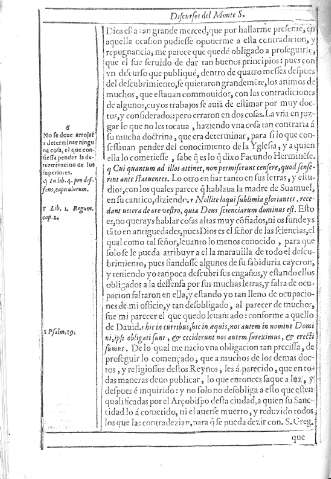 Discursos del Monte S.
Dios esta tan grande merced, que por hallarme presente, en
aquella ocasion pudiesse oponerme a ella contradicion, y
repugnancia, me parece que quedè obligado a proseguir
que el fue seruido de dar tan buenos principios: pues con
vn discurso que publiquè, dentro de quatro meses despues
del descubrimiento, se quietaron grandemẽte, los animos de
muchos, que estauan commouidos, con las contradiciones
de algunos, cuyos trabajos se aurà de estimar por muy doc-
tos, y considerados: pero erraron en dos cosas. La vna en juz-
gar lo que no les tocaua, haziendo vna cosa tan contraria à
su mucha doctrina, que era determinar, para si lo que con-
fessauan pender del conocimiento de la Yglesia, y a quien
ella lo cometiesse, sabe q̃ es lo q̃ dixo Facundo Herminẽse.
q Cui quantum ad illos attinet, non permississent censere, quod sense-
runt ante statuentes. Lo otro en fiar tanto en sus letras, y estu-
dios, con los quales parece q̃ hablaua la madre de Samuel,
en su cantico, diziendo. r Nolite loqui sublimia gloriantes, rece-
dant vetera de ore vestro, quia Deus scienciarum dominus est. Esto
es, no querays hablar cosas altas muy cõfiados, ni os fundeys
tãto en antiguedades, pues Dios es el señor de las sciencias, el
qual como tal señor, leuanto lo menos conocido, para que
solo se le pueda atribuyr a el la marauilla de todo el descu-
brimiento, pues fiandosse algunos de su sabiduria cayeron,
y teniendo yo tan poca descubri sus engaños, y estando ellos
obligados a la defensa por sus muchas letras, y falta de ocu-
pacion faltaron en ella, y estando yo tan lleno de ocupacio-
nes de mi officio, y tan desobligado, al parecer de muchos,
fue mi parecer el que quedo leuantado: conforme a quello
de Dauid. s hi in curribus, hi in equis, nos autem in nomine Domi
ni, ipsi obligati sunt, & ceciderunt nos autem surreximus, & erecti
sumus. De lo qual me nacio vna obligacion tan precissa, de
proseguir lo começado, que a muchos de los demas doc-
tos, y religiosos destos Reynos, les à parecido, que en to-
das maneras deuo publicar, lo que entonces saque a luz, y
despues è inquirido: y no solo no desobliga a ello que esten
qualificadas por el Arçobispo desta ciudad, a quien su Sanc-
tidad lo à cometido, ni el auerse muerto, y reduzido todos
los que las contradezian, para q̃ se pueda dezir con S. Greg.
que
No se deue arrojar
a determinar ningu
na cosa, el que con-
fiesse pender la de-
terminacion de sus
superiores.
r Lib. 1. Regum.
cap. 2.
s Psalm. 19.